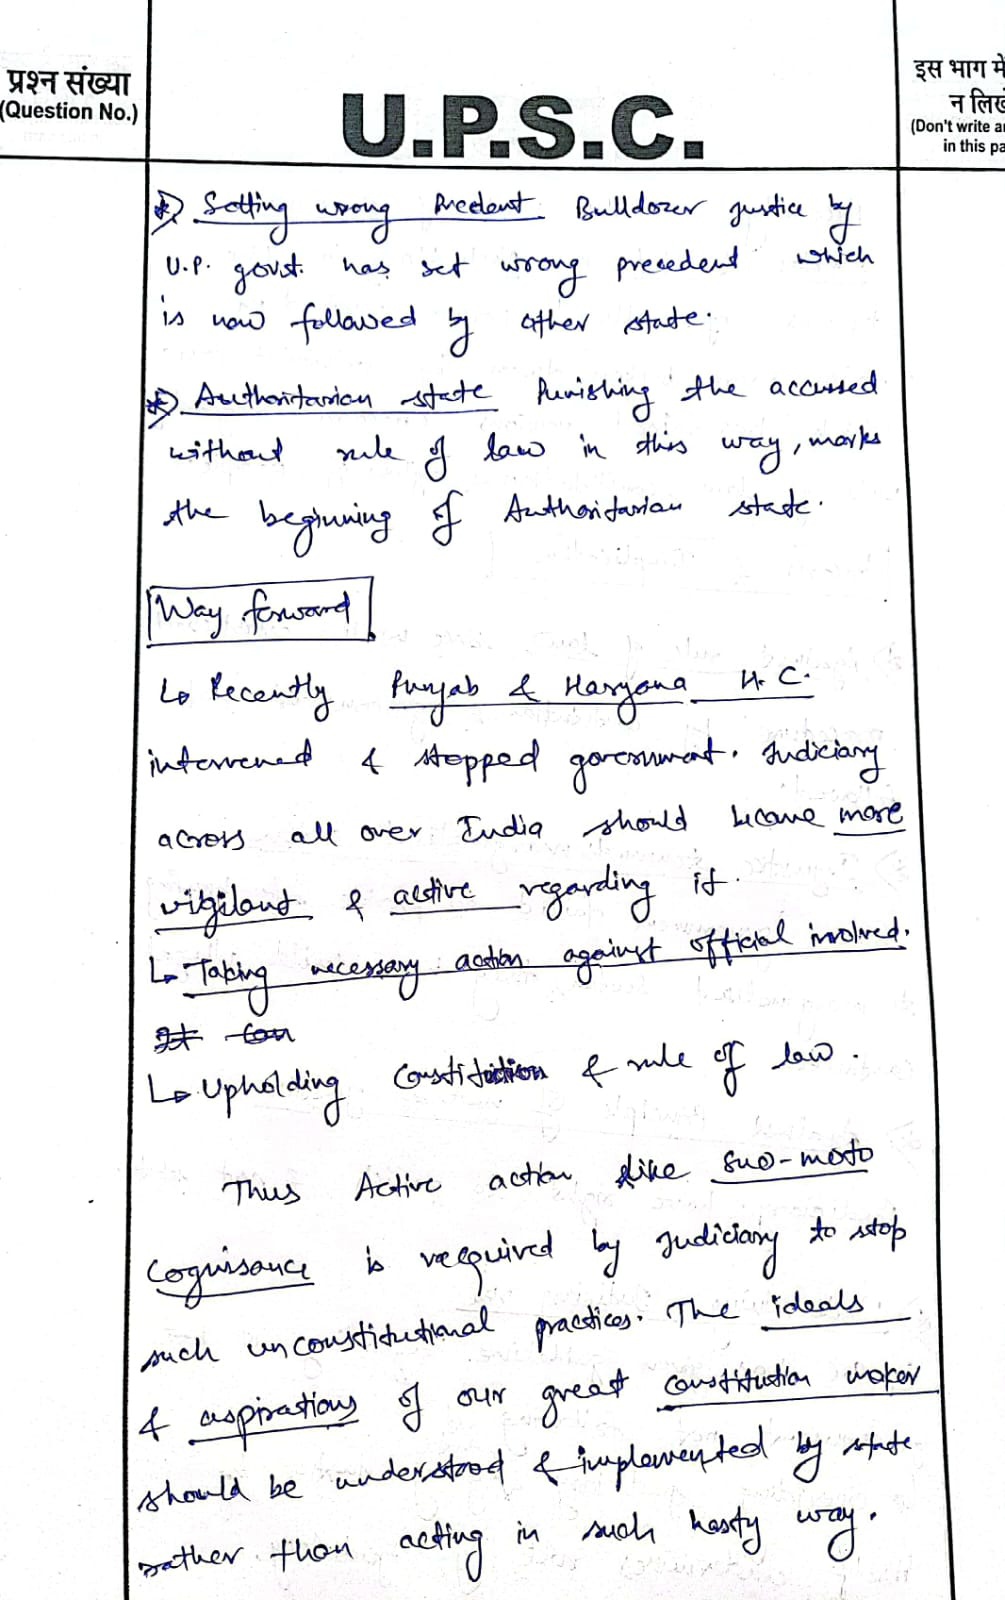 प्रश्न संख्या
(Question No.)
U.P.S.C.
इस भाग में
न लिखें
(Don't write an
in this pa
Setting wrong Precedent Bulldozer justice by
U.P. govt. has set wrong precedent which
is now followed by other state.
Authoritarian state Punishing the accussed
without rule of law in this way, marks
the beginning of Authoritarian state.
Way forward
↳ Recently Punjab & Haryana H.C.
intervened & stopped government. Judiciary
across all over India should become more
vigilant & active regarding it.
↳ Taking necessary action against official involved.
↳ Upholding Constitution & rule of law.
Thus Active action like suo-moto
Cognisance is required by judiciary to stop
such unconstitutional practices. The ideals
& aspirations of our great constitution maker
should be understood & implemented by state
rather than acting in such hasty way.